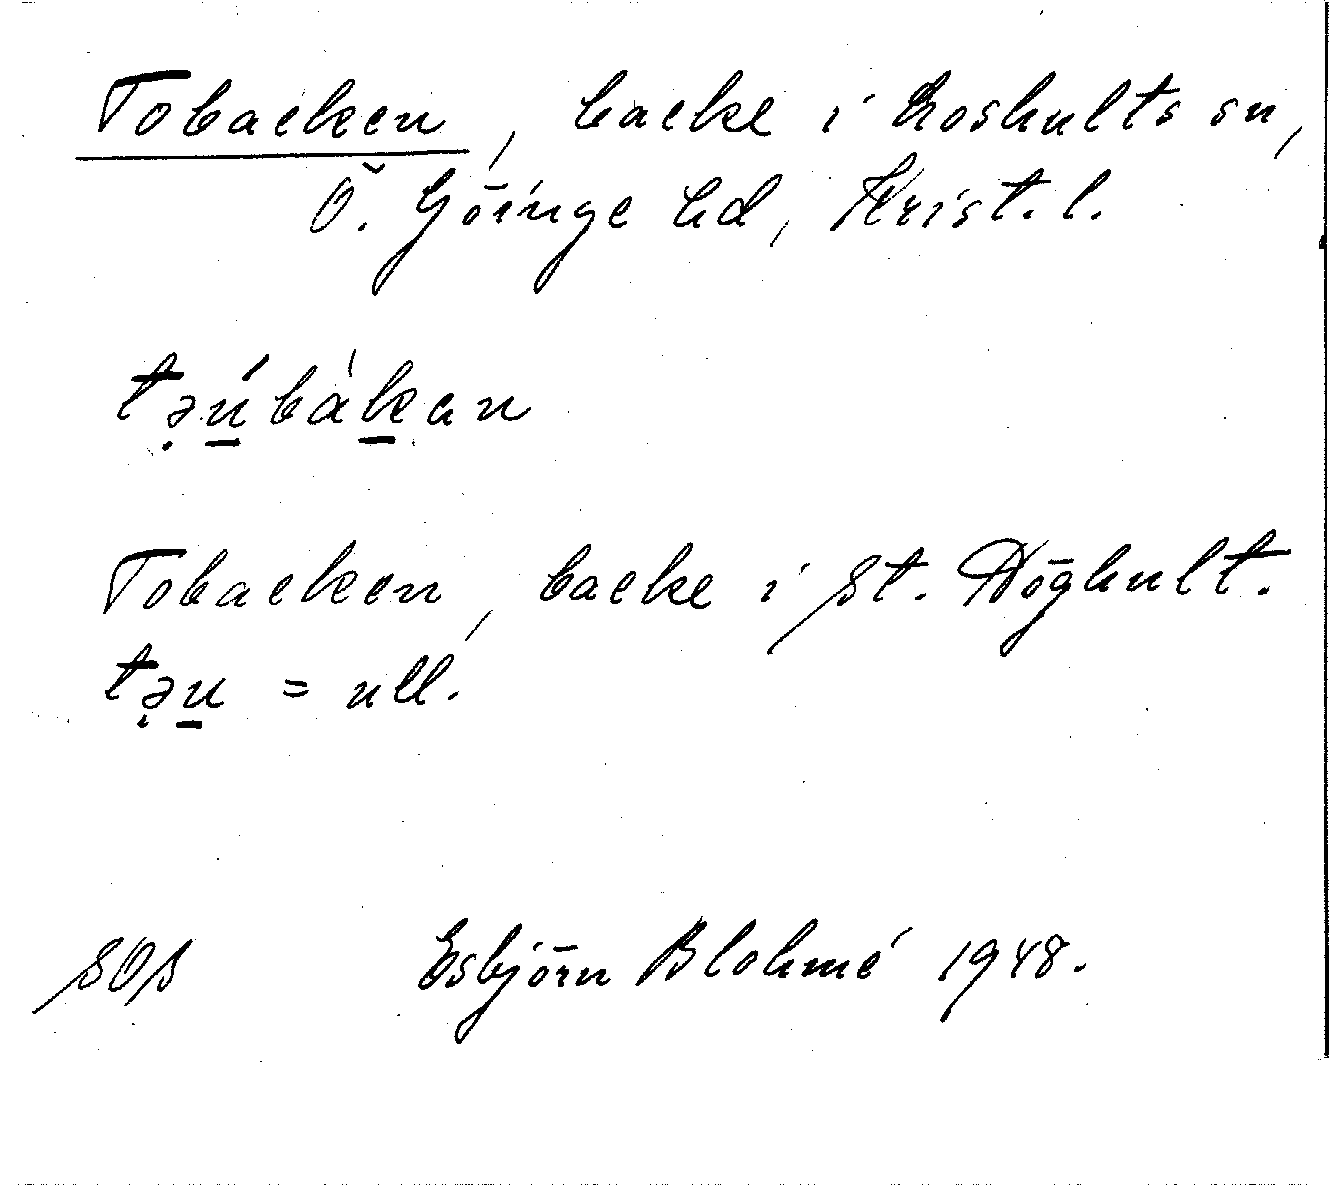 Tobacken, backe i Loshults sn,
Ö. Göinge hd, Krist. l.
tə̣ú̱bàḵan
Tobacken, backe i St. Höghult.
tə̣u̱ = ull.
SOS Esbjörn Blohmé 1948.